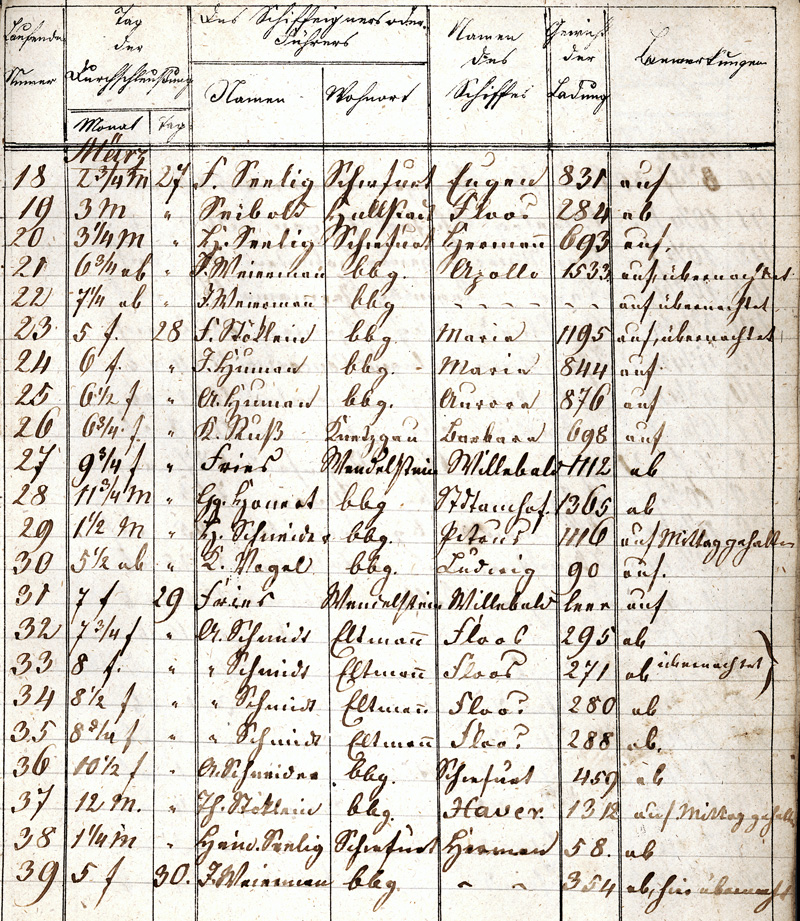 Laufende Numer | Tag der Durchschleußung | Des Schiffeigners oder Führers | Namen des Schiffes | Gewicht der Ladung | Bemerkungen
Monat | Tag | Namen | Wohnort
März
18 2 3/4 M 27 F. Seelig Schweinfurt Eugen 831 auf
19 3 M " Seibold Hallstadt Floos 284 ab
20 3 1/4 M " H. Seelig Schweinfurt Hermann 693 auf.
21 6 3/4 ab " J. Weierman bbg. Apollo 1533 auf, übernachtet
22 7 1/4 ab " J. Weierman bbg - - - - - - auf übernachtet
23 5 f. 28 F. Stöklein bbg. Maria 1195 auf, übernachtet
24 6 f. " J. Human bbg. Maria 844 auf
25 6 1/2 f " A. Human bbg. Aurora 876 auf
26 6 3/4 f " K. Ruß Knetzgau Barbara 698 auf
27 9 3/4 f " Fries Wendelstein Willebald 1112 ab
28 11 3/4 M " Gg. bbg Stdtamhof. 1365 ab
29 1 1/2 M " H. Schneider bbg. 1116 auf Mittag gehalten
30 5 1/2 ab " K. Vogel bbg. Ludwig 90 auf.
31 7 f 29 Fries Wendelstein Willebald leer auf
32 7 3/4 f " A. Schmidt Eltmann Floos 295 ab
33 8 f. " " Schmidt Eltmann Floos 271 ab übernachtet
34 8 1/2 f " " Schmidt Eltmann Floos 280 ab
35 8 3/4 f " " Schmidt Eltmann Floos 288 ab.
36 10 1/2 f " A. Schneider bbg. Schweinfurt 459 ab
37 12 M. " Th. Stöklein bbg. Xaver. 1312 auf Mittag gehalten
38 1 1/4 M " Hein. Seelig Schweinfurt Herman 58. ab
39 5 f 30. J. Weierman bbg. - - 354 ab, hier übernacht